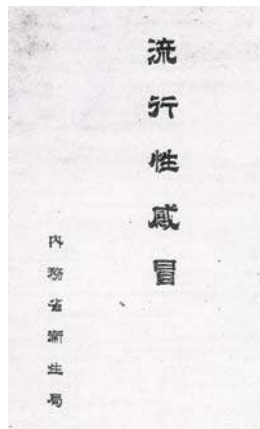 流行性感冒
内務省衞生局